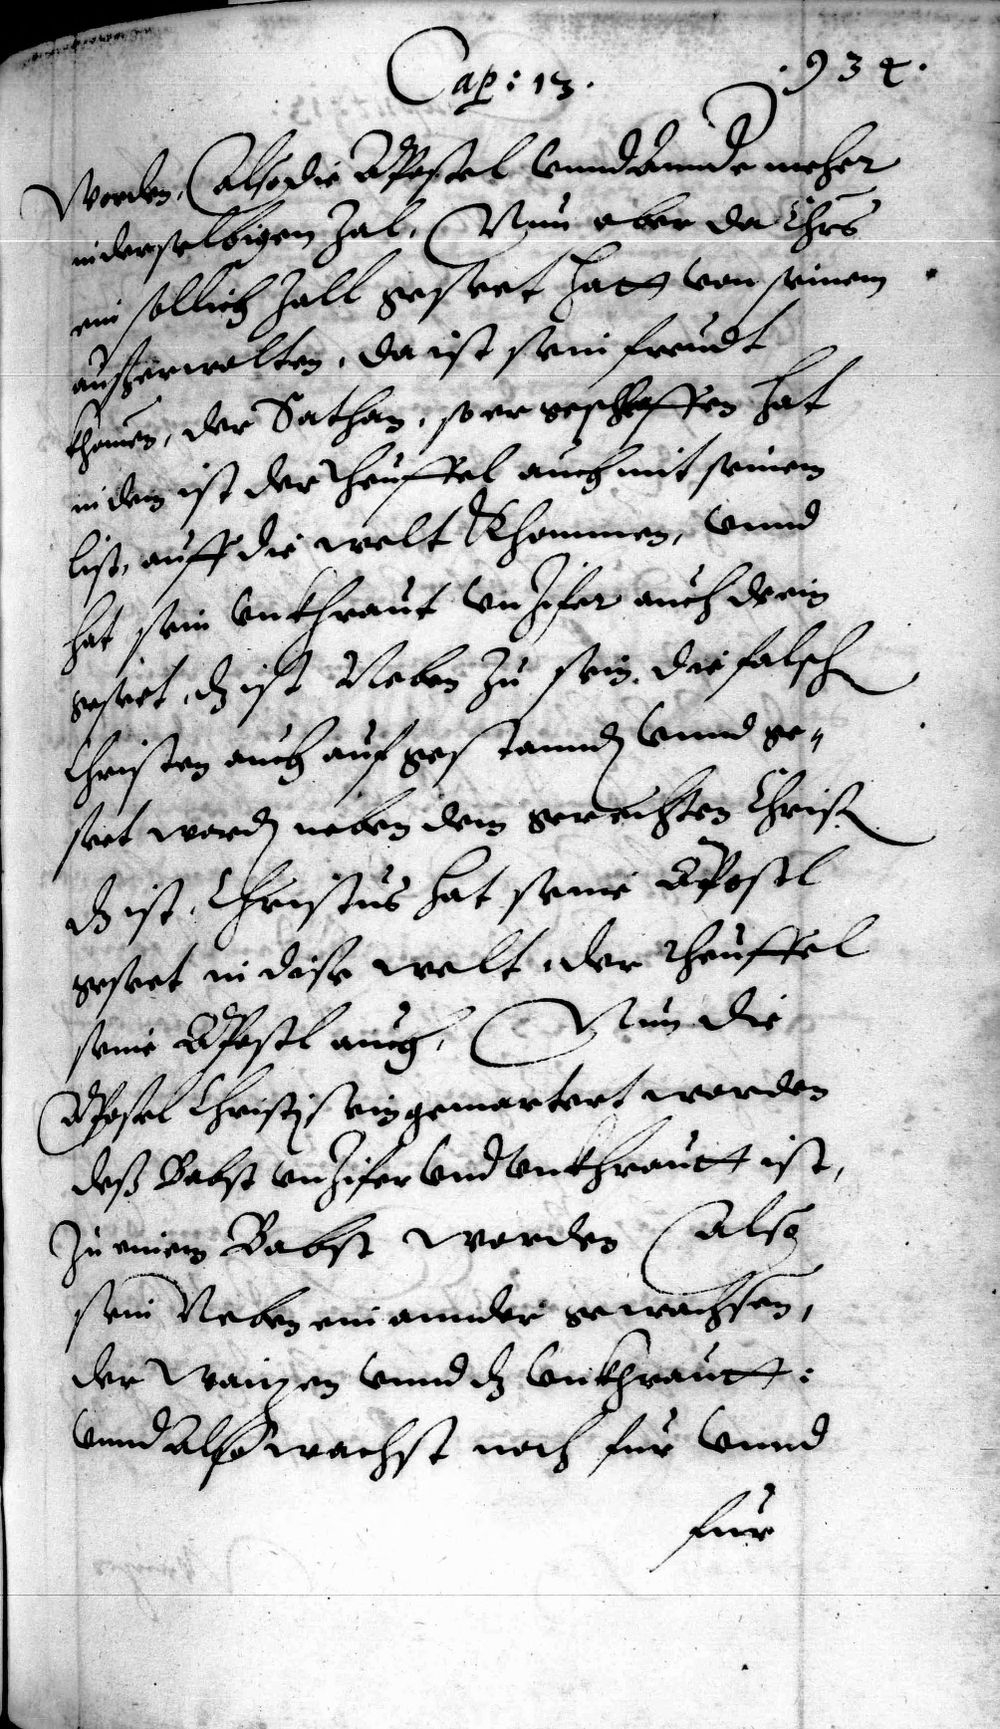 Cap: 13. .934.
Worden, Also die Apostel vnnd annde meher
in derselbigen Zal, Nun aber da Chrs
ein sollich Zall geseet hatt von seinem
außerwolten, da ist sein freudt
khomen, der Sathan, so er geschlaffen hat
in dem ist der Theuffel auch mit seinem
list, auff die welt Khommen, vnnd
hat sein vnkhraut vnZifer auch drein
geseet, dz ist Neben Zu sein, die falsch
Christen auch auf gestannd vnnd ge„
seet word neben dem gerechten Christ
dz ist, Christus hat seine Apostl
geseet in dise welt, der Theuffel
seine Apostl auch, Nun die
Apostel Christj sein gemartert worden
deß Babst vnZifer vnd vnkhrautt ist,
Zu einem Babst worden Also
sein Neben ein annder gewachsen,
der Waitzen vnnd dz vnkhrautt:
vnnd Also wachst noch fur vnnd
fur